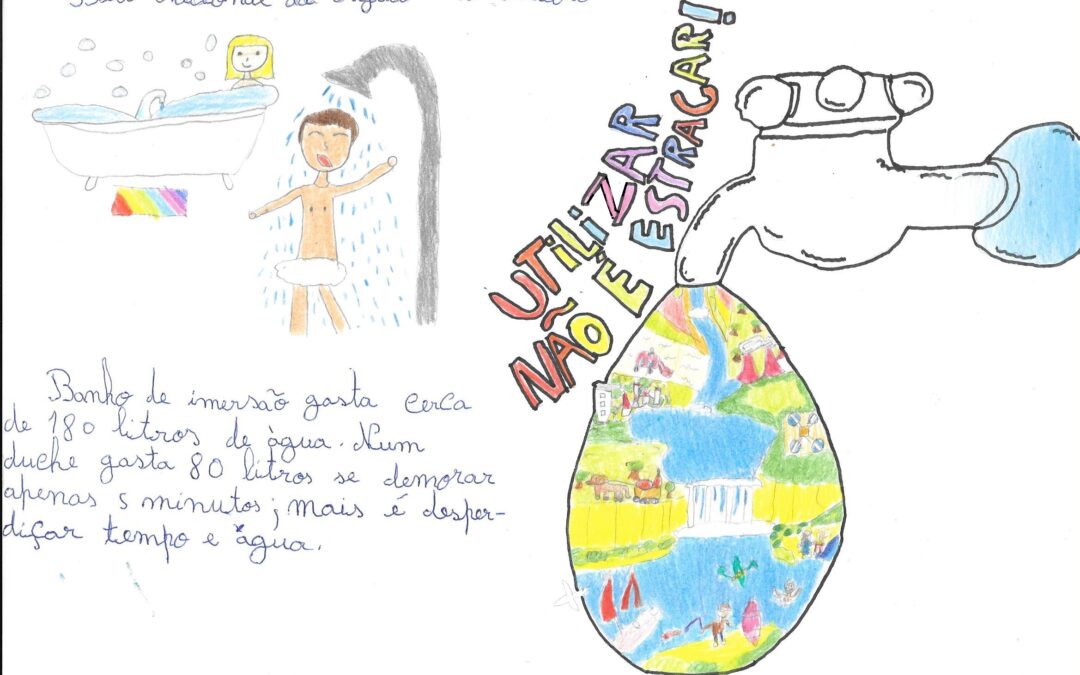 da Água
UTiLiZAR
NÃO É ESTRAGAR!
Banho de imersão gasta cerca
de 180 litros de àgua. Num
duche gasta 80 litros se demorar
apenas 5 minutos; mais é desper-
diçar tempo e àgua.